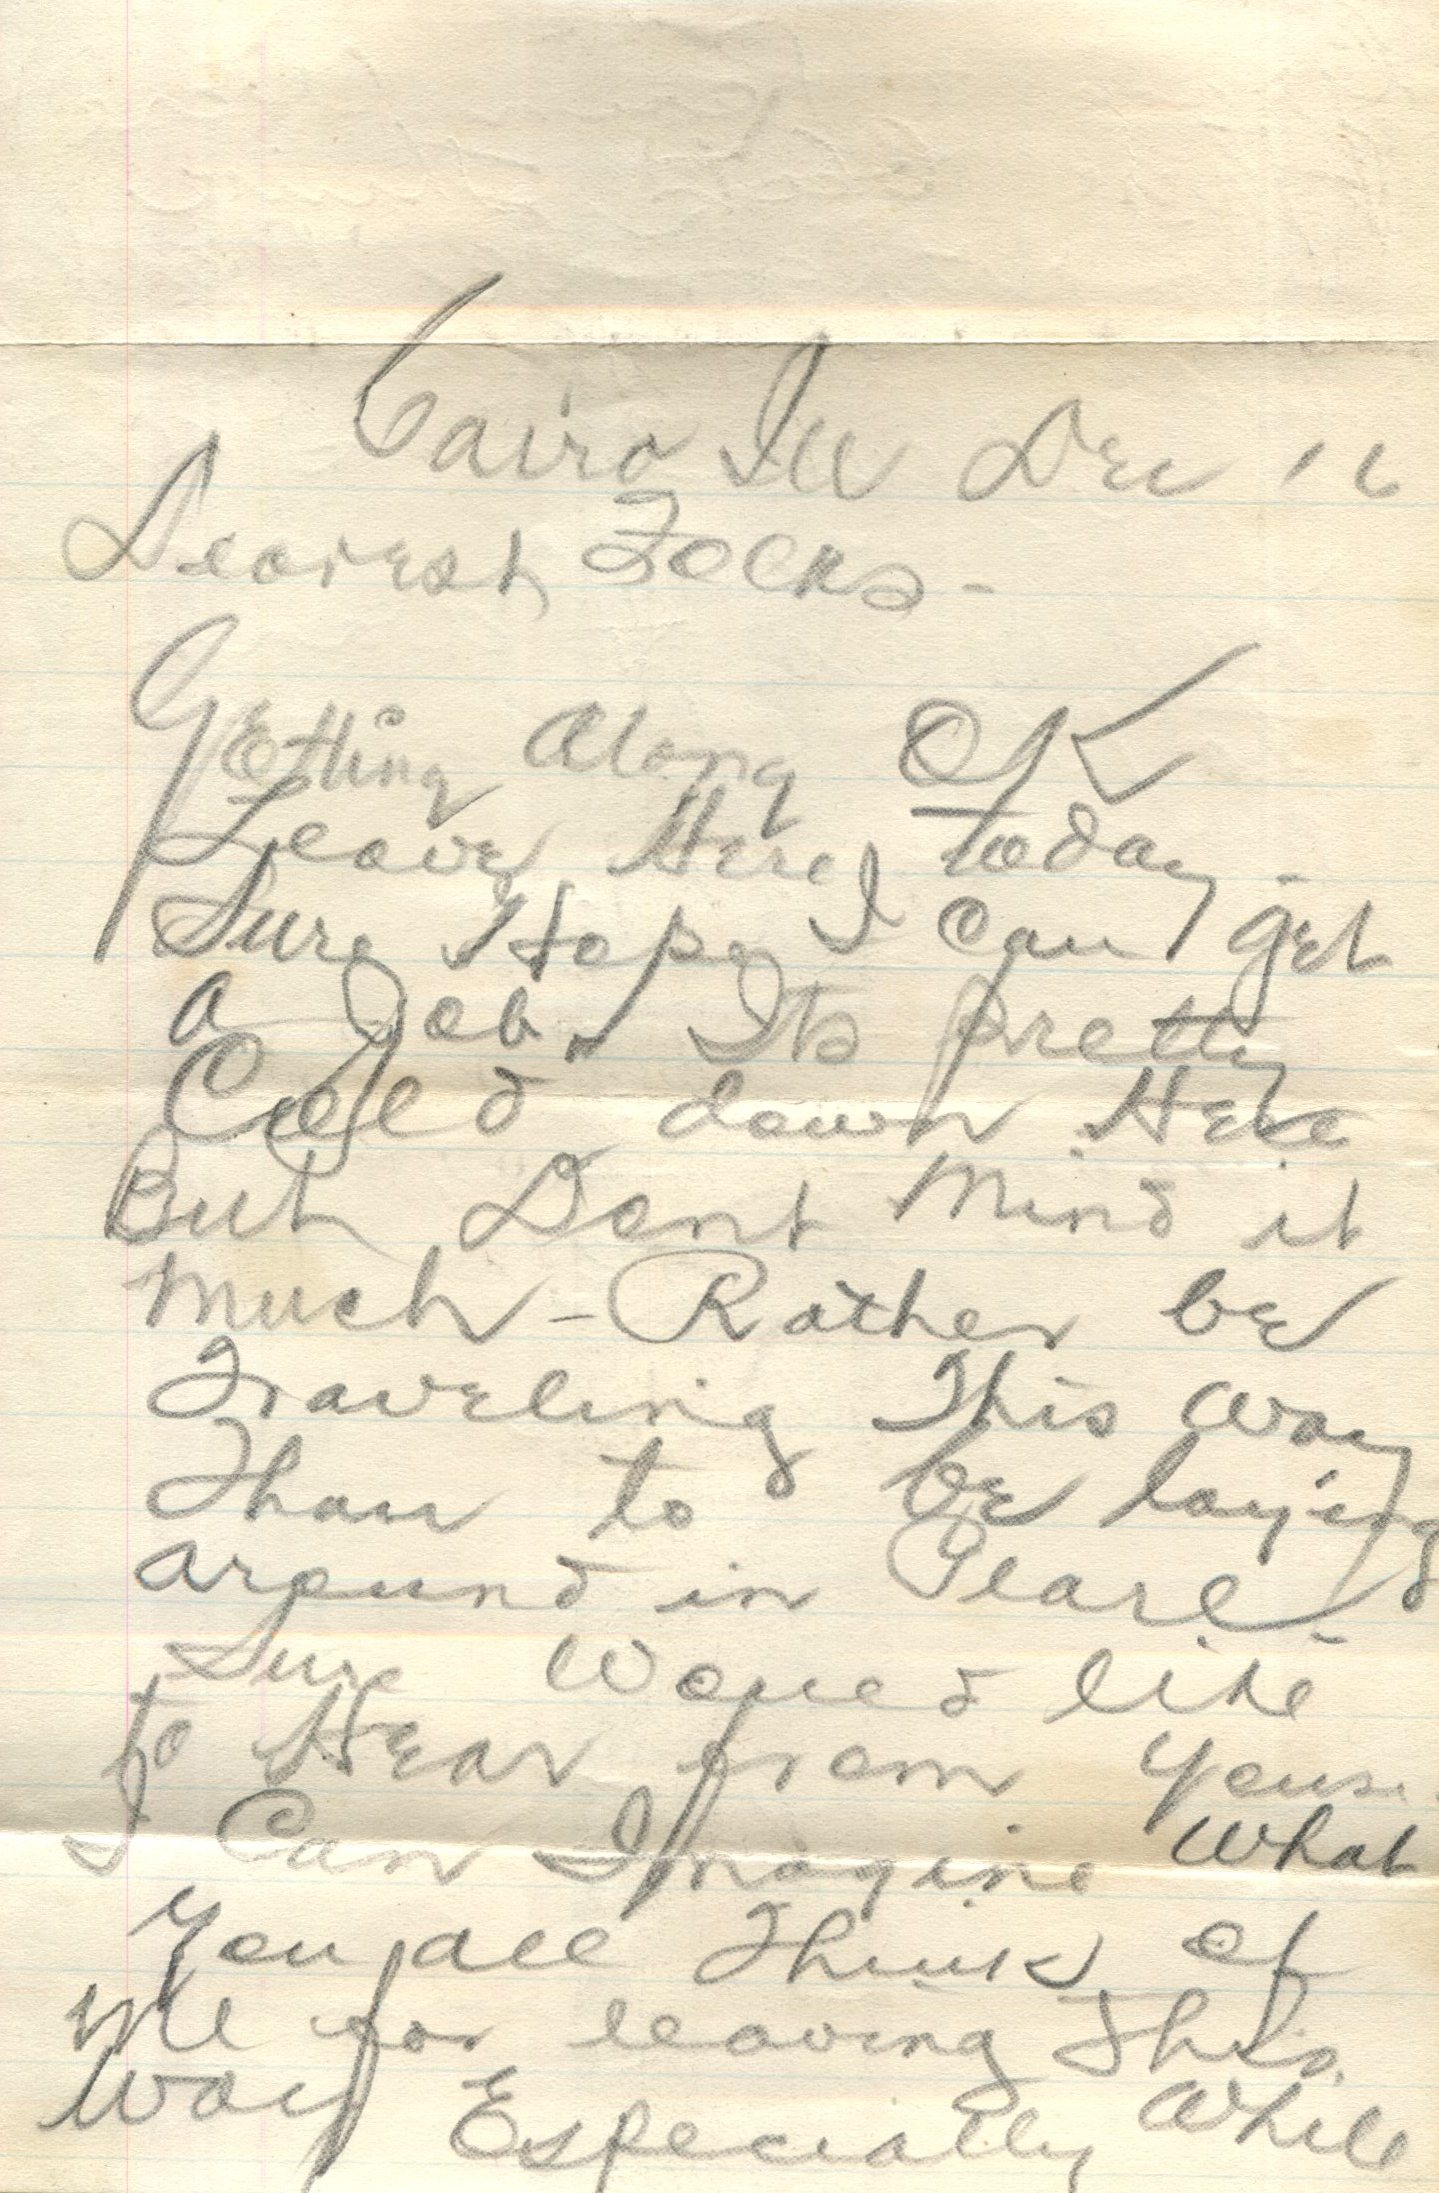 Cairo Ill Dec 16
Dearest Folks -
Getting Along OK
Leave Here today -
Sure Hope I Can get
a Job. Its pretty
Cold down Here
But Dont Mind it
Much - Rather be
Traveling This way
Than to be laying
around in Pearl -
Sure Would like
to Hear from Yous.
I Can Imagine What
You all Think of
Me for leaving This
Way Especially While